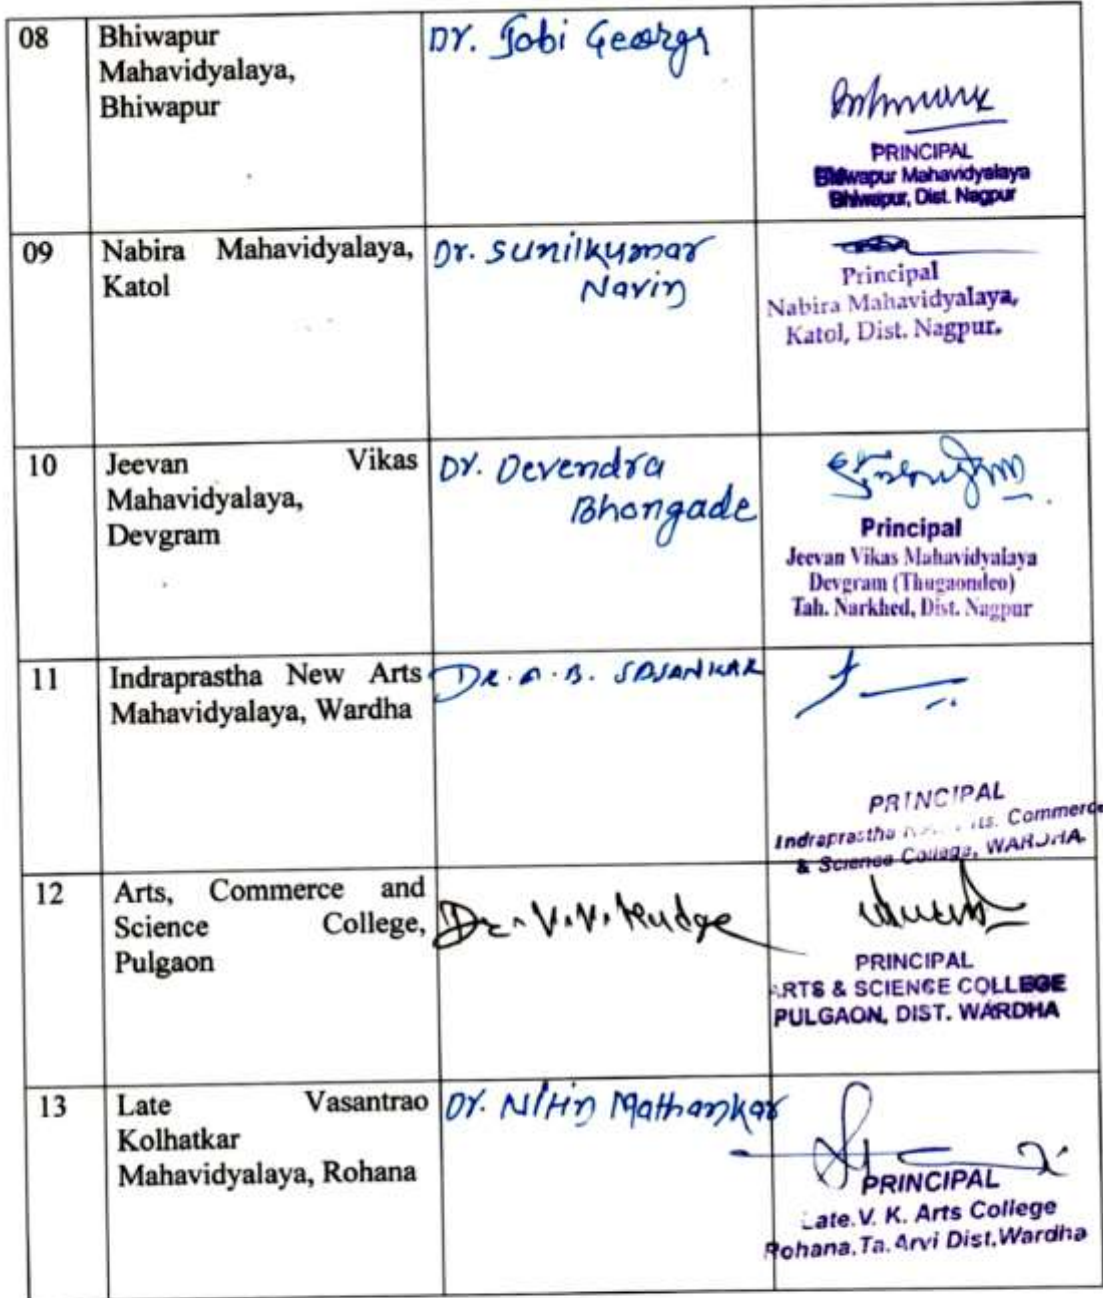 08
Bhiwapur
Mahavidyalaya,
Bhiwapur
Dr. Jobi George
PRINCIPAL
Bhiwapur Mahavidyalaya
Bhiwapur, Dist. Nagpur
09
Nabira Mahavidyalaya,
Katol
Dr. Sunilkumar
Navin
Principal
Nabira Mahavidyalaya,
Katol, Dist. Nagpur.
10
Jeevan Vikas
Mahavidyalaya,
Devgram
Dr. Devendra
Bhongade
Principal
Jeevan Vikas Mahavidyalaya
Devgram (Thugaondeo)
Tah. Narkhed, Dist. Nagpur
11
Indraprastha New Arts
Mahavidyalaya, Wardha
DR. A. B. SASANKAR
PRINCIPAL
Indraprastha Commerce
& Science College, WARDHA.
12
Arts, Commerce and
Science College,
Pulgaon
Dr. V. V. Mudge
PRINCIPAL
ARTS & SCIENCE COLLEGE
PULGAON, DIST. WARDHA
13
Late Vasantrao
Kolhatkar
Mahavidyalaya, Rohana
Dr. Nitin Mathankar
PRINCIPAL
Late. V. K. Arts College
Rohana, Ta. Arvi Dist, Wardha